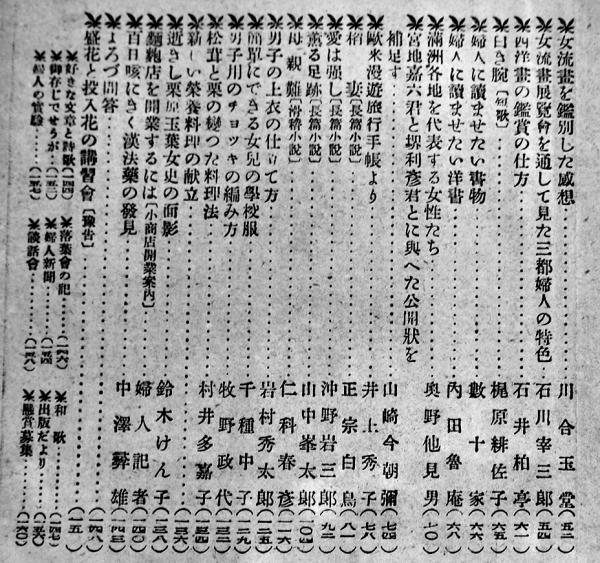 女流畫を鑑別した感想 川合玉堂(五二)
女流畫展覽會を通して見た三都婦人の特色 石川宰三郎(五四)
西洋畫の鑑賞の仕方 石井柏亭(六一)
白き腕[短歌] 梶原緋佐子(六五)
婦人に讀ませたい書物 數十家(六六)
婦人に讀ませたい洋書 內田魯庵(六八)
滿洲各地を代表する女性たち 奧野他見男(七〇)
宮地嘉六君と堺利彥君とに與へた公開狀を
補足す 山崎今朝彌(七四)
歐米漫遊旅行手帳より 井上秀子(七八)
稻妻[長篇小說] 正宗白鳥(八一)
愛は强し[長篇小說] 沖野岩三郎(九二)
薫る足跡[長篇小說] 山中峯太郎(一〇四)
母親難[滑稽小說] 仁科春彥(一一六)
男子の上衣の仕立て方 岩村秀太郎(一二五)
簡單にできる女兒の學校服 千種中子(一二九)
男子用のチョッキの編み方 牧野政代(一三二)
松茸と栗の變つた料理法 村井多嘉子(一三四)
新しい榮養料理の献立 (一三六)
逝きし栗原玉葉女史の面影 鈴木けん子
麵麭店を開業するには[小商店開業案內] 婦人記者(一四〇)
百日咳にきく漢法藥の發見 中澤彛雄(一四三)
よろづ問答 (一四八)
盛花と投入花の講習會[豫吿]
好きな文章と詩歌(一四四)
御存じでせうが(一五〇)
婦人の實驗(一五七)
落葉會の記(一四六)
婦人新聞(一五四)
談話會(一五八)
和歌(一四七)
出版だより(一五六)
懸賞募集(一六〇)